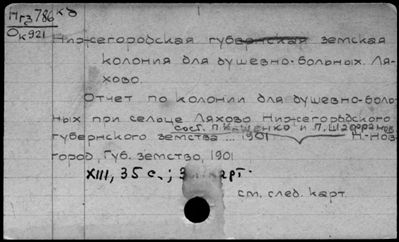 Пгз 786 к/д
Ок 921
Нижегородская губернская земская
колония для душевно-больных. Ля-
хово.
Отчет по колонии для душевно-боль-
ных при сельце Ляхово Нижегородского
сост. П. Кащенко и П. Шафранов
губернского земства ... 1901 Н.-Нов-
город, Губ. земство, 1901
XIII, 35 с.; карт.
см. след. карт.